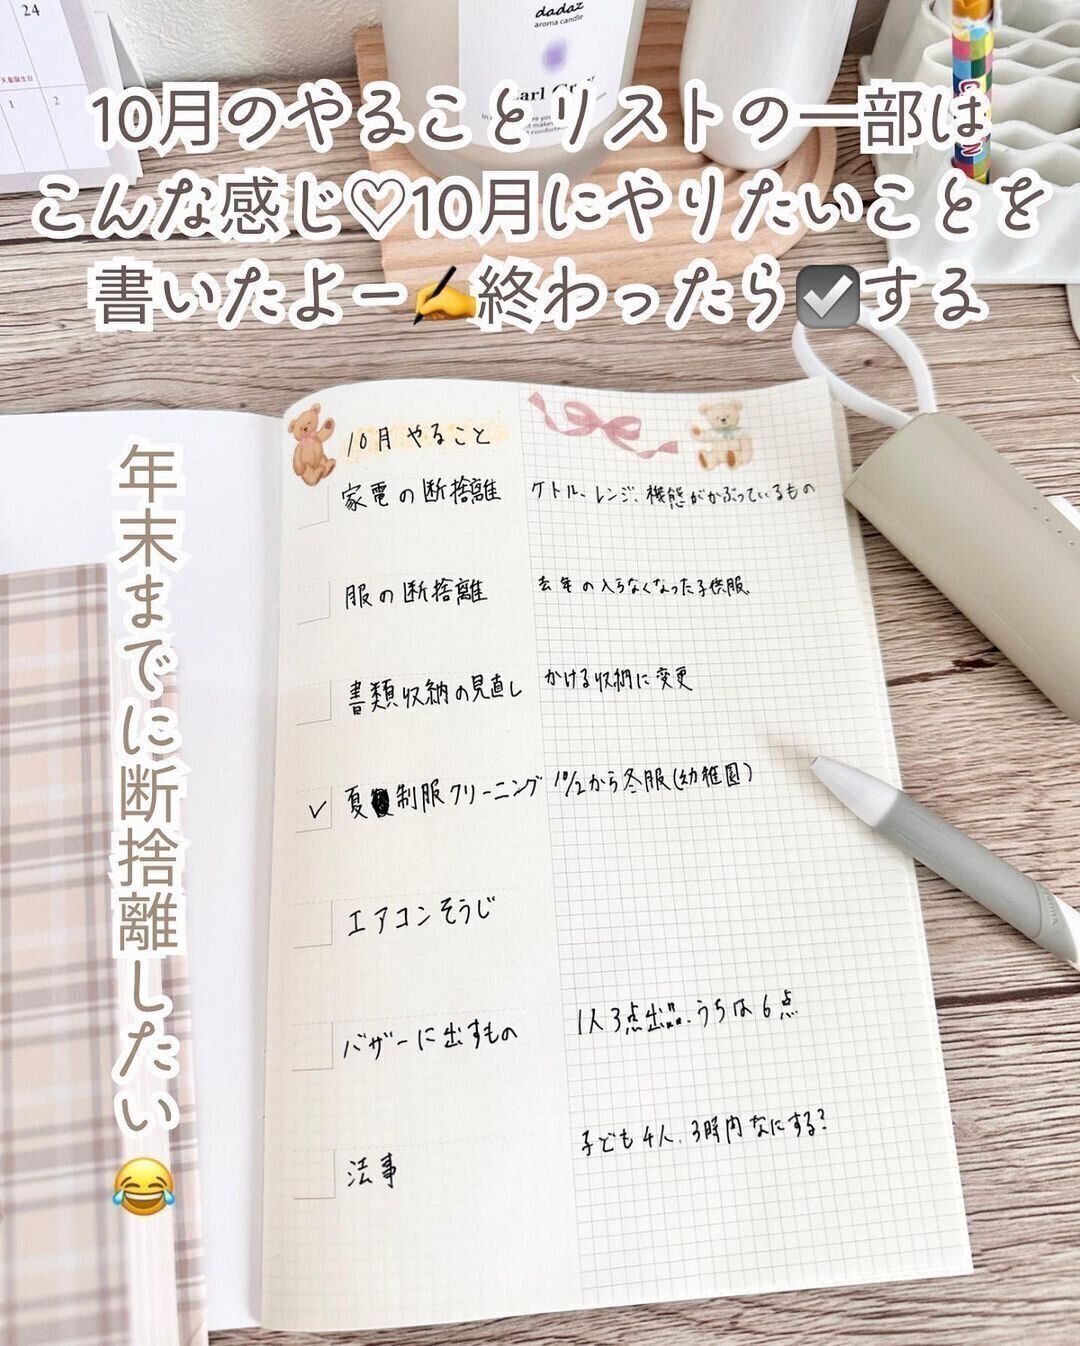 24
天皇誕生日
1 2
dadaz
aroma candle
10月のやることリストの一部は
こんな感じ♡10月にやりたいことを
書いたよー✍終わったら☑する
年末までに断捨離したい😂
10月やること
家電の断捨離 ケトル、レンジ、機能がかぶっているもの
服の断捨離 去年の入らなくなった子供服
書類収納の見直し かける収納に変更
✓ 夏制服クリーニング 10/2から冬服(幼稚園)
エアコンそうじ
バザーに出すもの 1人3点出品、うちは6点
法事 子ども4人、3時内なにする?